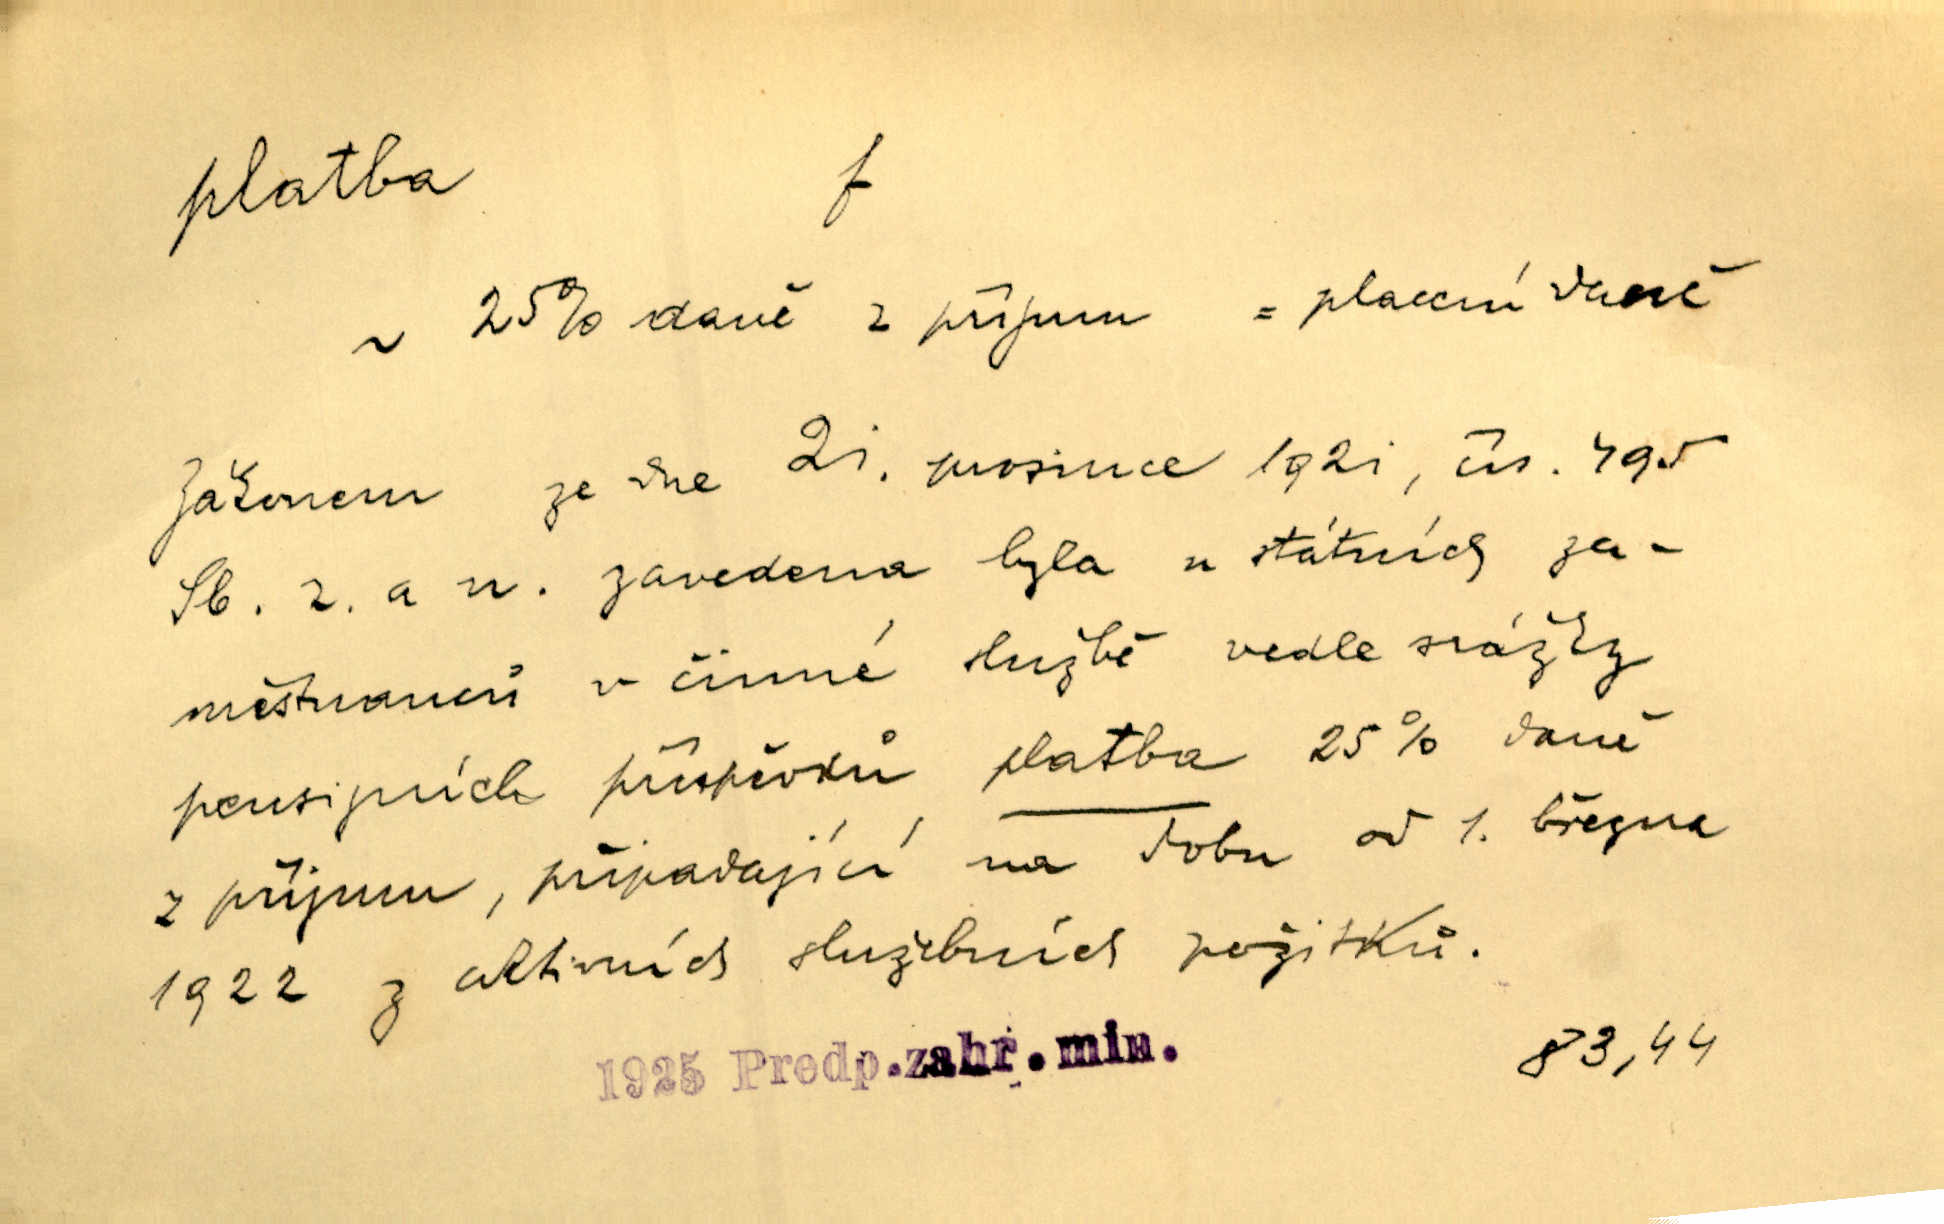 platba f
~ 25% daně z příjmu = placení daně
Zákonem ze dne 21. prosince 1921, čís. 495
Sb. z. a n. zavedena byla u státních za-
městnanců v činné službě vedle srážky
pensijních příspěvků platba 25% daně
z příjmu, připadající na dobu od 1. března
1922 z aktivních služebních požitků.
1925 Předp.zahr.min.
83,44